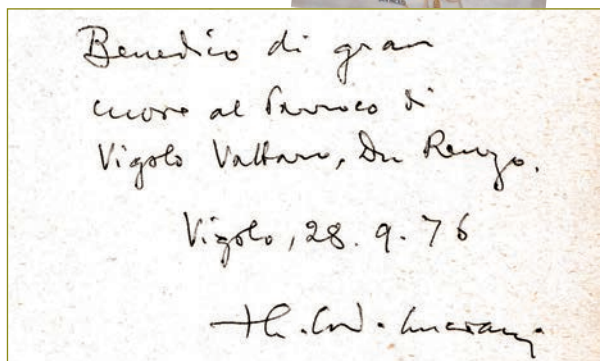 Benedico di gran
cuore al Parroco di
Vigolo Vattaro, Don Renzo.
Vigolo, 28.9.76
+ Al. Card. Luciani